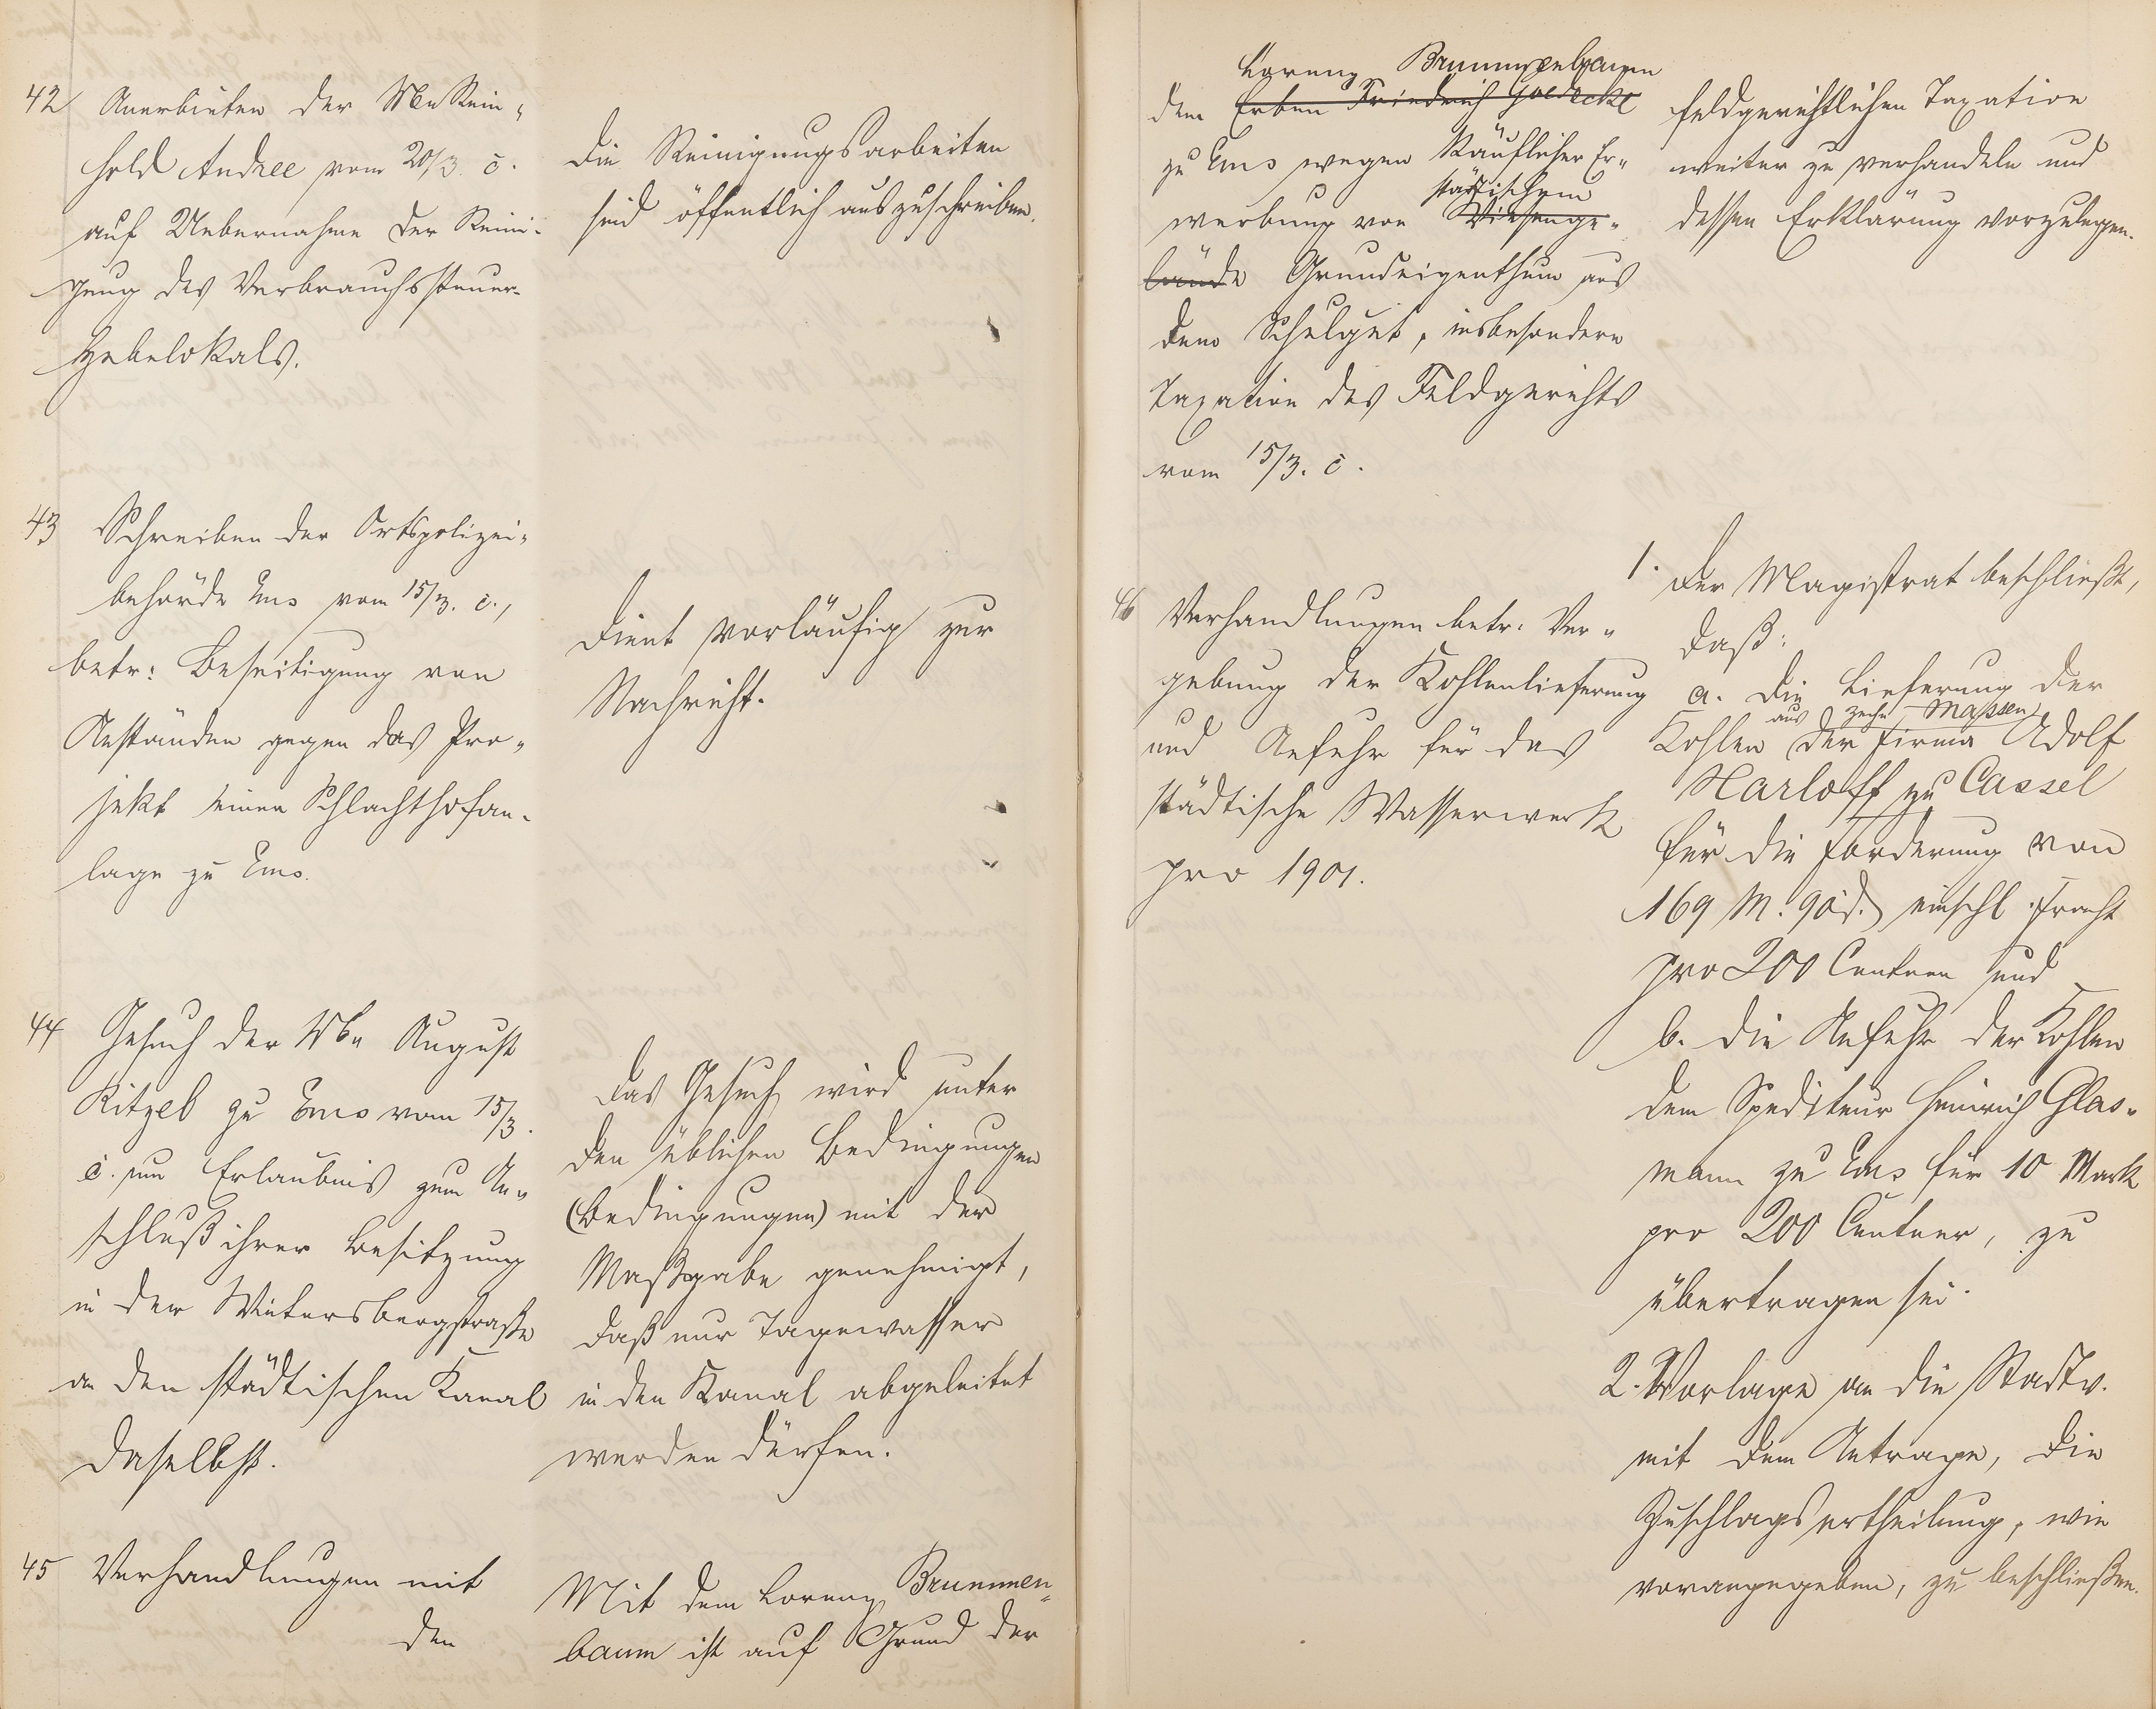 42 Anerbieten der Wwe Rein-
hold Andree vom 20/3. c.
auf Uebernahme der Reini-
gung des Verbrauchssteuer-
Hebelokals.
Die Reinigungsarbeiten
sind öffentlich auszuschreiben.
43 Schreiben der Ortspolizei-
behörde Ems vom 15/3. c.,
betr: Beseitigung von
Anständen gegen das Pro-
jekt einer Schlachthofan-
lage zu Ems.
Dient vorläufig zur
Nachricht.
44 Gesuch der Wwe August
Kitzel zu Ems vom 15/3.
c. um Erlaubnis zum An-
schluß ihrer Besitzung
in der Wintersbergstraße
an den städtischen Kanal
daselbst.
Das Gesuch wird unter
den üblichen Bedingungen
(Bedingungen) mit der
Maßgabe genehmigt,
daß nur Tagewasser
in den Kanal abgeleitet
werden dürfen.
45 Verhandlungen mit
den
Mit dem Lorenz Brummen-
baum ist auf Grund der
Lorenz
dem Erben Friedrich Goedecke
zu Ems wegen käuflicher Er-
städtischem
werbung von Wiesenge-
lände Grundeigenthum aus
dem Schulgut, insbesondere
Taxation des Feldgerichts
vom 15/3. c.
feldgerichtlichen Taxation
weiter zu verhandeln und
dessen Erklärung vorzulegen.
46 Verhandlungen betr. Ver-
gebung der Kohlenlieferung
und Anfuhr für das
städtische Wasserwerk
pro 1901.
1. Der Magistrat beschließt,
daß:
a. die Lieferung der
aus Zeche Massen
Kohlen der Firma Adolf
Harloff zu Cassel
für die Forderung von
169 M. 90 d. einschl. Fracht
pro 200 Centner und
b. die Anfuhr der Kohlen
dem Spediteur Heinrich Glas-
mann zu Ems für 10 Mark
pro 200 Centner, zu
übertragen sei.
2. Vorlage an die Stadtv.
mit dem Antrage, die
Zuschlagsertheilung, wie
vorangegeben, zu beschließen.